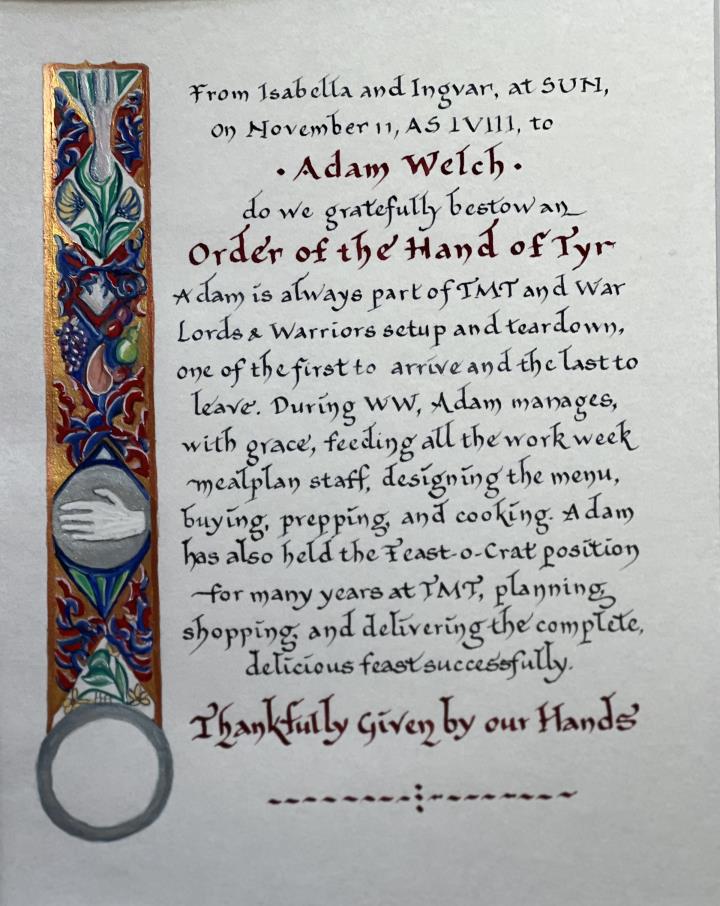 From Isabella and Ingvar, at SUN,
on November 11, AS LVIII, to
· Adam Welch ·
do we gratefully bestow an
Order of the Hand of Tyr
Adam is always part of TMT and War
Lords & Warriors setup and teardown,
one of the first to arrive and the last to
leave. During WW, Adam manages,
with grace, feeding all the work week
mealplan staff, designing the menu,
buying, prepping, and cooking. Adam
has also held the Feast-o-Crat position
for many years at TMT, planning,
shopping, and delivering the complete,
delicious feast successfully.
Thankfully Given by our Hands